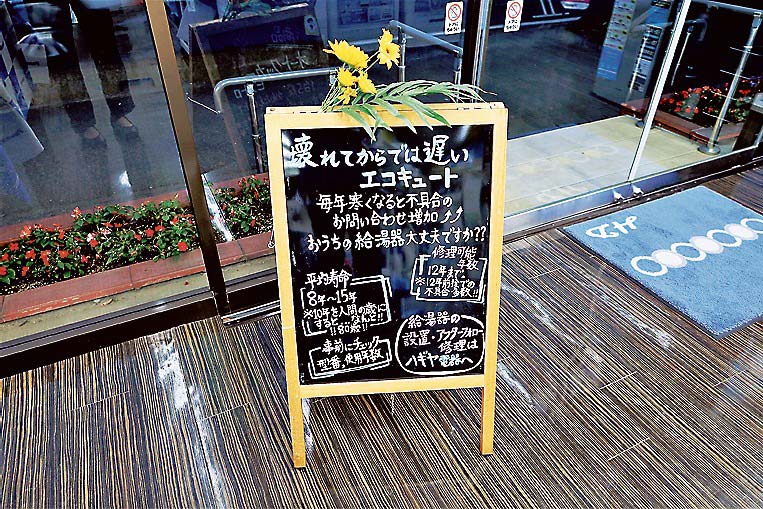 壊れてからでは遅い
エコキュート
毎年寒くなると不具合の
お問い合わせ増加⤴⤴
おうちの給湯器大丈夫ですか??
平均寿命
8年〜15年
※10年を人間の歳に
すると…なんと!!
!!80歳!!
修理可能
年数
12年まで
※12年前後での
不具合多数!!
事前にチェック
型番,使用年数
給湯器の
設置・アフターフォロー
修理は
ハギヤ電器へ